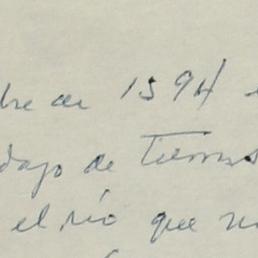 bre de 1594 e
dazo de Tierras
el río que n